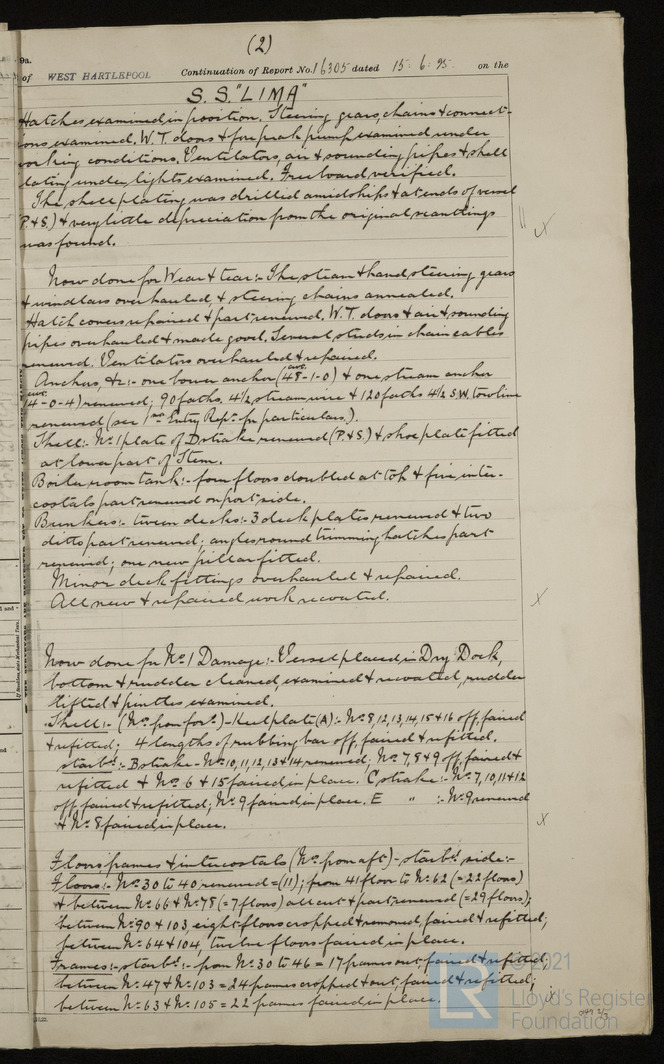 (2)
9a.
of WEST HARTLEPOOL Continuation of Report No. 16305 dated 15 : 6 : 25. on the
S.S. "LIMA"
Hatches examined in position. Steering gears, chains & connect-
ions examined. W.T. doors & fore peak pump examined under
working conditions. Ventilators, air & sounding pipes & shell
plating under lights examined. Freeboard verified.
The shell plating was drilled amidships & at ends of vessel
P. & S.) & very little depreciation from the original scantlings
was found.
Now done for Wear & tear:- The steam & hand steering gears
& windlass overhauled, & steering chains annealed.
Hatch covers repaired & part renewed. W.T. doors & air & sounding
pipes overhauled & made good. Several studs in chain cables
renewed. Ventilators overhauled & repaired.
Anchors, &c:- one bower anchor (48-1-0) & one stream anchor
14-0-4) renewed; 90 faths. 4½ stream wire & 120 faths 4½ S.W. towline
renewed (see 1st Entry Rep. for particulars.).
Shell:- No. 1 plate of D strake renewed (P. & S.) & shoe plate fitted
at lower part of Stem.
Boiler room tank:- four floors doubled at top & five inter-
costals part renewed on port side.
Bunkers:- tween decks:- 3 deck plates renewed & two
ditto part renewed; angles round trimming hatches part
renewed; one new pillar fitted.
Minor deck fittings overhauled & repaired.
All new & repaired work recoated.
Now done for No. 1 Damage:- Vessel placed in Dry Dock,
bottom & rudder cleaned, examined & recoated, rudder
lifted & pintles examined.
Shell:- (Nos. from ford.) - Keel plate (A):- Nos. 8, 12, 13, 14, 15 & 16 off, faired
& refitted; 4 lengths of rubbing bar off, faired & refitted.
starbd:- B strake - Nos. 10, 11, 12, 13 & 14 renewed; Nos. 7, 8 & 9 off, faired &
refitted & Nos. 6 & 15 faired in place. C strake:- Nos. 7, 10, 11 & 12
off, faired & refitted; No. 9 faired in place. E " :- No. 9 renewed
& No. 8 faired in place.
Floors frames & intercostals (Nos. from aft) - starbd. side:-
Floors:- Nos. 30 to 40 renewed = (11); from 41 floor to No. 62 (= 22 floors)
& between Nos. 66 & No. 78 (= 7 floors) all cut & part renewed (= 29 floors);
between Nos. 90 & 103, eight floors cropped & removed, faired & refitted;
between Nos. 64 & 104, twelve floors faired in place.
Frames:- starbd:- from No. 30 to 46 = 17 frames out, faired & refitted;
between No. 47 & No. 103 = 24 frames cropped & out, faired & refitted;
between No. 63 & No. 105 = 22 frames faired in place.
© 2021
Lloyd's Register
Foundation
LR